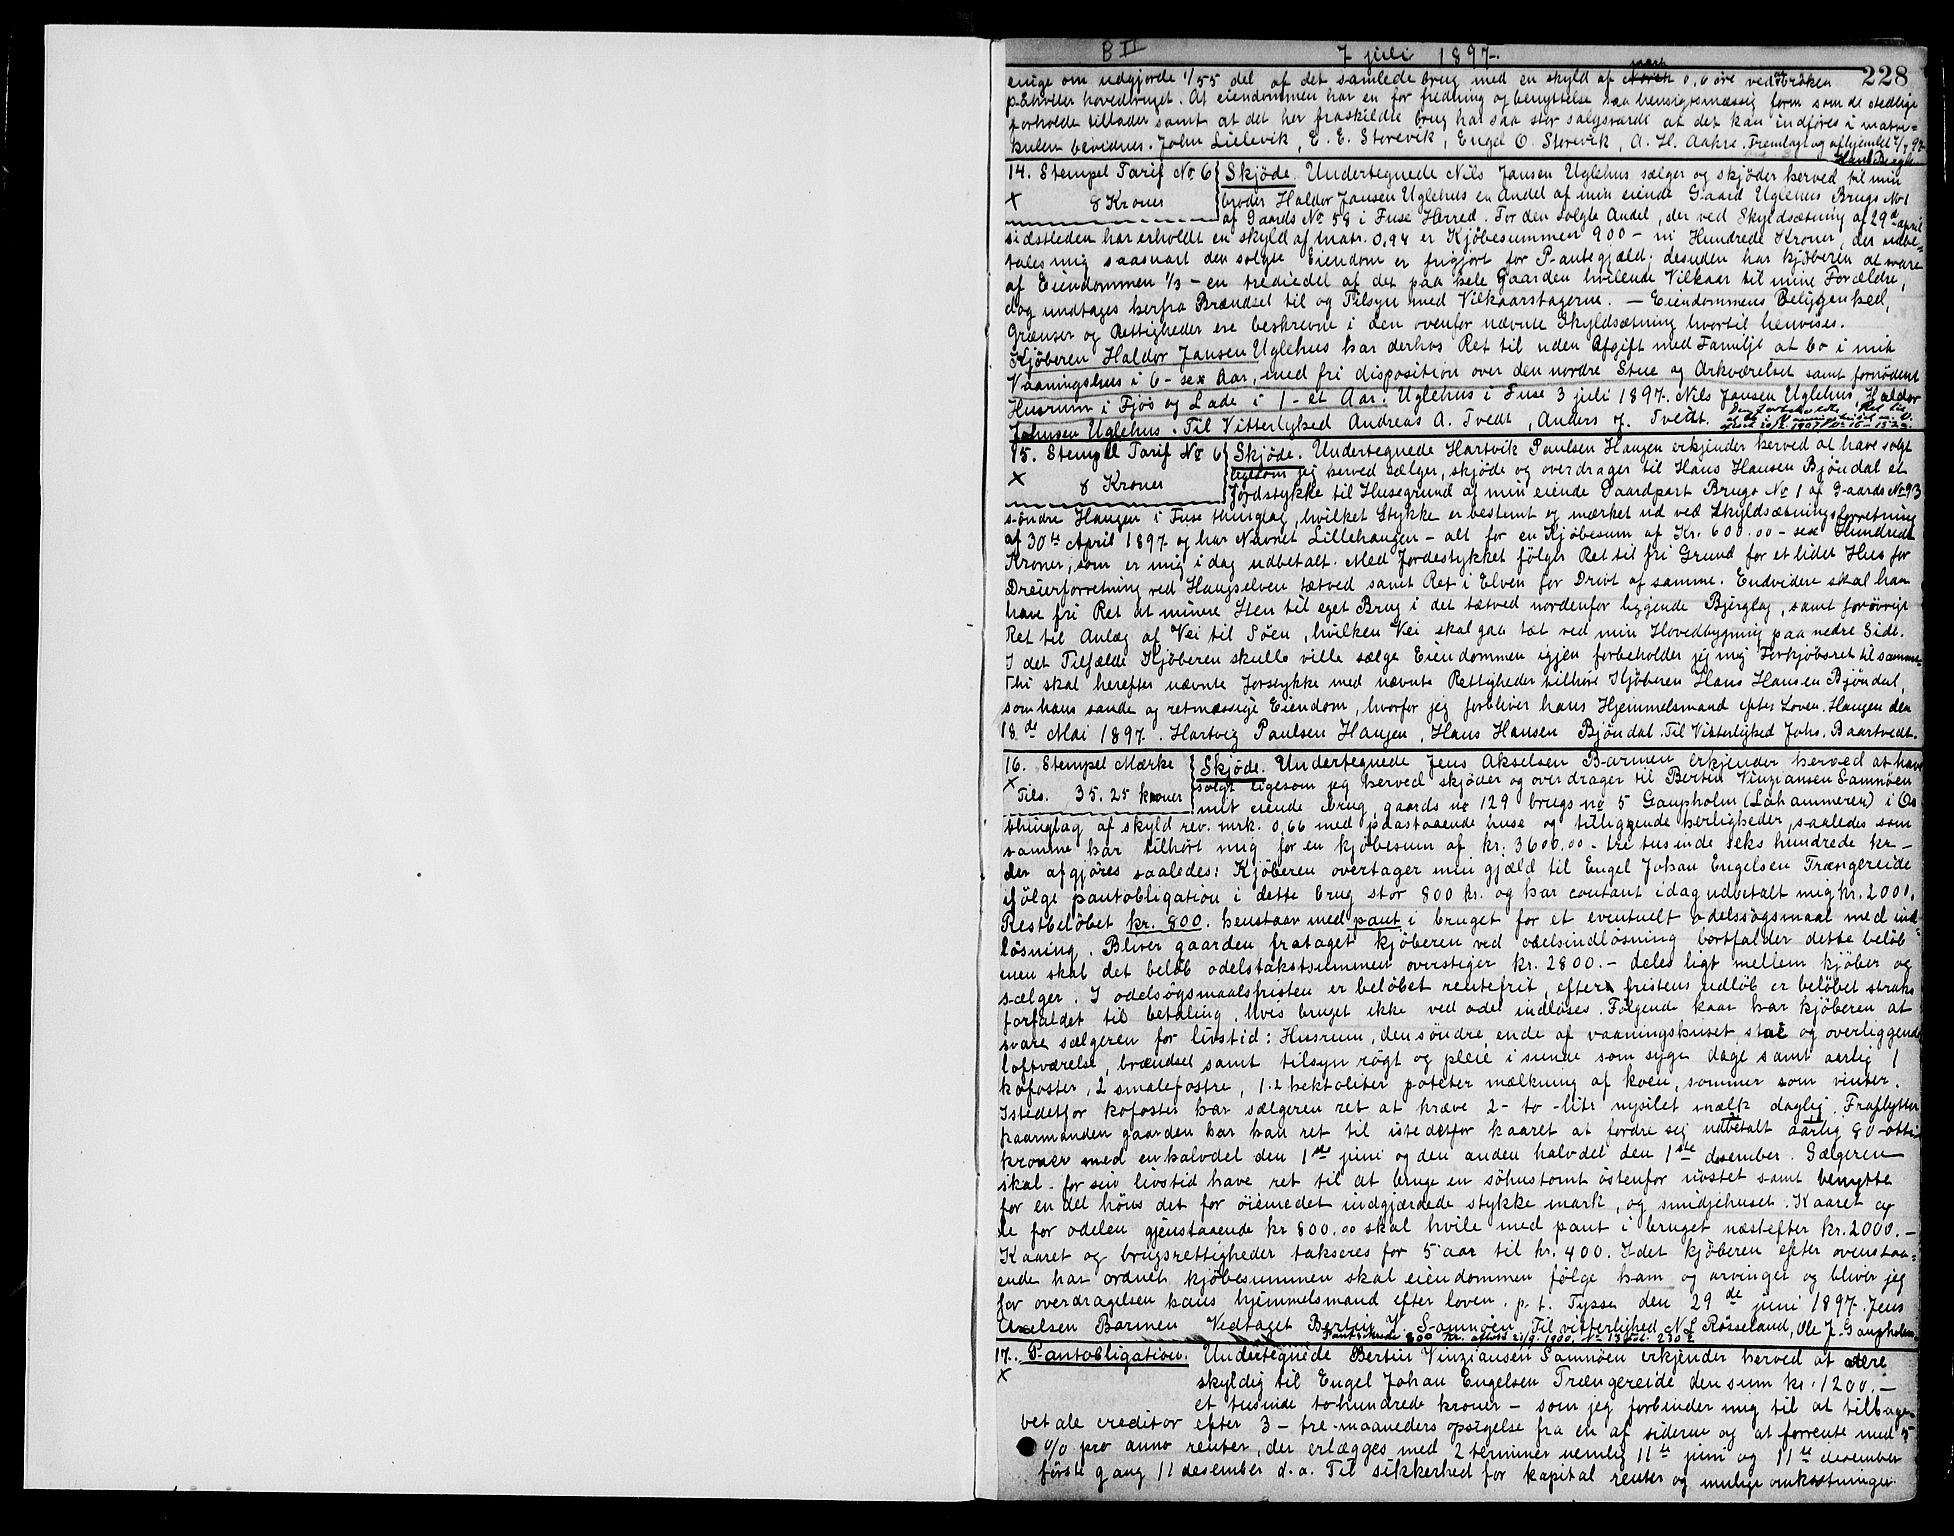 B II 7 juli 1897.
228
enige om udgjorde 1/55 del af det samlede brug med en skyld af mark 0,6 øre ved at brøken
påhviler hovedbruget. At eiendommen har en for fredning og benyttelse saa hensigtsmæssig form som de stedlige
forholde tillader samt at det her fraskildte brug har saa stor salgsværdi at det kan indføres i matri=
kulen bevidner. John Lillevik, E. E. Storevik, Engel O. Storevik, A. H. Aakre. Fremlagt og afhjemlet 7/7 97.
14. Stempel Tarif No 6 Skjøde. Undertegnede Nils Jansen Uglehus sælger og skjøder herved til min
x 8 Kroner broder Haldor Jansen Uglehus en Andel af min eiende Gaard Uglehus Brugs No 1
af Gaards No 58 i Fuse Herred. For den solgte Andel, der ved Skyldsætning af 29de april
sidstleden har erholdt en skyld af matr. 0,94 er Kjøbesummen 900 – ni Hundrede Kroner, der udbe=
tales mig saasnart den solgte Eiendom er frigjort for Pantegjæld; desuden har kjøberen at svare
af Eiendommen 1/3 – en trediedel af det paa hele Gaarden hvilende Vilkaar til mine Forældre,
dog undtages herfra Brændsel til og Tilsyn med Vilkaarstagerne. – Eiendommens Beliggenhed,
Grænser og Rettigheder ere beskrevne i den ovenfor nævnte Skyldsætning hvortil henvises.
Kjøberen Haldor Jansen Uglehus har derhos Ret til uden Afgift med Familje at bo i mit
Vaaningshus i 6 – sex Aar, med fri disposition over den nordre Stue og Arkværelset samt fornødent
Husrum i Fjøs og Lade i 1 – et Aar. Uglehus i Fuse 3 juli 1897. Nils Jansen Uglehus, Haldor
Johnsen Uglehus. Til Vitterlighed Andreas A. Tvedt, Anders J. Tvedt.
15. Stempel Tarif No 6 Skjøde. Undertegnede Hartvik Paulsen Haugen erkjender herved at have solgt
x 8 Kroner ligesom jeg herved sælger, skjøde og overdrager til Hans Hansen Bjøndal et
Jordstykke til Husegrund af min eiende Gaardpart Brugs No 1 af Gaards No 93
søndre Haugen i Fuse thinglag, hvilket Stykke er bestemt og mærket ud ved Skyldsætningsforretning
af 30te April 1897 og har Navnet Lillehaugen – alt for en Kjøbesum af Kr. 600.00 – sex Hundrede
Kroner, som er mig i dag udbetalt. Med Jordestykket følger Ret til fri Grund for et lidet Hus for
Dreierforretning ved Haugselven tætved samt Ret i Elven for Drivt af samme. Endvidere skal han
have fri Ret at minere Sten til eget Brug i det tætved nordenfor liggende Bjerglag, samt forøvrigt
Ret til Anlæg af Vei til Søen, hvilken Vei skal gaa tæt ved min Hovedbygning paa nedre Side.
I det Tilfælde Kjøberen skulle ville sælge Eiendommen igjen forbeholder jeg mig Forkjøbsret til samme.
Thi skal herefter nævnte Jorstykke med nævnte Rettigheder tilhøre Kjøberen Hans Hansen Bjøndal,
som hans sande og retmæssige Eiendom, hvorfor jeg forbliver hans Hjemmelsmand efter Loven. Haugen den
18de Mai 1897. Hartvig Paulsen Haugen, Hans Hansen Bjøndal. Til Vitterlighed Johs. Baartvedt.
16. Stempel Mærke Skjøde. Undertegnede Jens Akselsen Barmen erkjender herved at have
x Tils. 35.25 kroner solgt ligesom jeg herved skjøder og overdrager til Bertin Vinziansen Samnøen
mit eiende brug, gaards no 129 brugs no 5 Gaupholm (Lahammeren) i Os
thinglag af skyld rev. mrk. 0,66 med paastaaende huse og tilliggende herligheder, saaledes som
samme har tilhørt mig for en kjøbesum af kr. 3600.00 – tre tusende seks hundrede kr –
der afgjøres saaledes: Kjøberen overtager min gjæld til Engel Johan Engelsen Trængereide
ifølge pantobligation i dette brug stor 800 kr. og har contant idag udbetalt mig kr. 2000.
Restbeløbet kr. 800. henstaar med pant i bruget for et eventuelt odelssøgsmaal med ind=
løsning. Bliver gaarden frataget kjøberen ved odelsindløsning bortfalder dette beløb
men skal det beløb odelstakstsummen overstiger kr. 2800.– deles ligt mellem kjøber og
sælger. I odelsøgsmaalsfristen er beløbet rentefrit, efter fristens udløb er beløbet straks
forfaldet til betaling, hvis bruget ikke ved odel indløses. Følgende kaar har kjøberen at
svare sælgeren for livstid: Husrum, den søndre ende af vaaningshuset, stue og overliggende
loftværelse, brændsel samt tilsyn røgt og pleie i sunde som syge dage samt aarlig 1
kofoster, 2 smalefostre, 1.2 hektoliter poteter mælkning af koen, sommer som vinter.
Istedetfor kofoster har sælgeren ret at kræve 2 – to – litr nysilet mælk daglig. Fraflytter
kaarmanden gaarden har han ret til istedetfor kaaret at fordre sig udbetalt aarlig 80 – otti
kroner med en halvdel den 1ste juni og den anden halvdel den 1ste desember. Sælgeren
skal for sin livstid have ret til at bruge en søhustomt østenfor nøstet samt benytte
for en del høns det for øiemedet indgjærdede stykke mark, og smidjehuset. Kaaret og
de for odelen gjenstaaende kr 800.00 skal hvile med pant i bruget næstefter kr. 2000.–
Kaaret og brugsrettigheder takseres for 5 aar til kr. 400. Idet kjøberen efter ovenstaa=
ende har ordnet kjøbesummen skal eiendommen følge ham og arvinger og bliver jeg
for overdragelsen hans hjemmelsmand efter loven. p. t. Tysse den 29de juni 1897. Jens
Axelsen Barmen Vedtaget Bertin V. Samnøen. Til vitterlighed N. L. Røsseland, Ole J. Gaupholm.
17. Pantobligation. Undertegnede Bertin Vinziansen Samnøen erkjender herved at være
x skyldig til Engel Johan Engelsen Trængereide den sum kr. 1200.–
et tusinde tohundrede kroner – som jeg forbinder mig til at tilbage=
betale creditor efter 3 – tre – maaneders opsigelse fra en af siderne og at forrente med 5
% pro anno renter, der erlægges med 2 terminer nemlig 11te juni og 11te desember
første gang 11 desember d.a. Til sikkerhed for kapital renter og mulige omkostninger